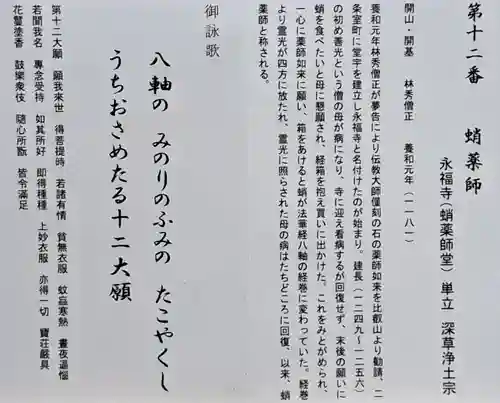 第十二番　蛸薬師
永福寺（蛸薬師堂）単立　深草浄土宗
開山・開基　林秀僧正　養和元年（一一八一）
養和元年林秀僧正が夢告により伝教大師僅刻の石の薬師如来を比叡山より勧請、二
条室町に堂宇を建立し永福寺と名付けたのが始まり。建長（一二四九〜一二五六）
の初め善光という僧の母が病になり、寺に迎え看病するが回復せず、末後の願いに
蛸を食べたいと母に懇願され、経箱を抱え買いに出かけた。これをみとがめられ、
一心に薬師如来に願い、箱をあけると蛸が法華経八軸の経巻に変わっていた。経巻
より霊光が四方に放たれ、霊光に照らされた母の病はたちどころに回復、以来、蛸
薬師と称される。
御詠歌
八軸の　みのりのふみの　たこやくし
うちおさめたる十二大願
第十二大願　願我来世　得菩提時　若諸有情　貧無衣服　蚊蝱寒熱　晝夜逼惱
若聞我名　專念受持　如其所好　即得種種　上妙衣服　亦得一切　寶莊嚴具
花鬘塗香　鼓樂衆伎　隨心所翫　皆令滿足